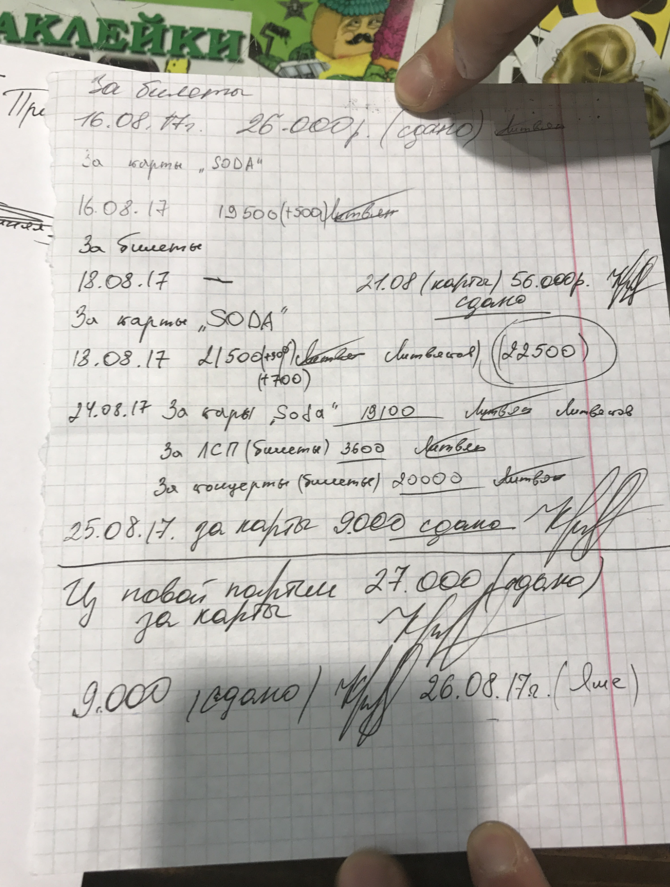 АКЛЕЙКИ
Пре
За билеты
16.08.17г. 26.000р. (сдано) Литвяк
За карты „SODA"
16.08.17 19500(+500) Литвяк
За билеты
18.08.17 — 21.08 (карты) 56.000р.
сдано
За карты „SODA"
18.08.17 21500(+300) Литвяк Литвяков) (22500)
(+700)
24.08.17 За кары „Soda" 19100 Литвяк Литвяков
За ЛСП (билеты) 3600 Литвяк
За концерты (билеты) 20000 Литвяк
25.08.17. за карты 9.000 сдано
Из новой партии 27.000 (сдано)
за карты
9.000 (сдано) 26.08.17г. (Яше)